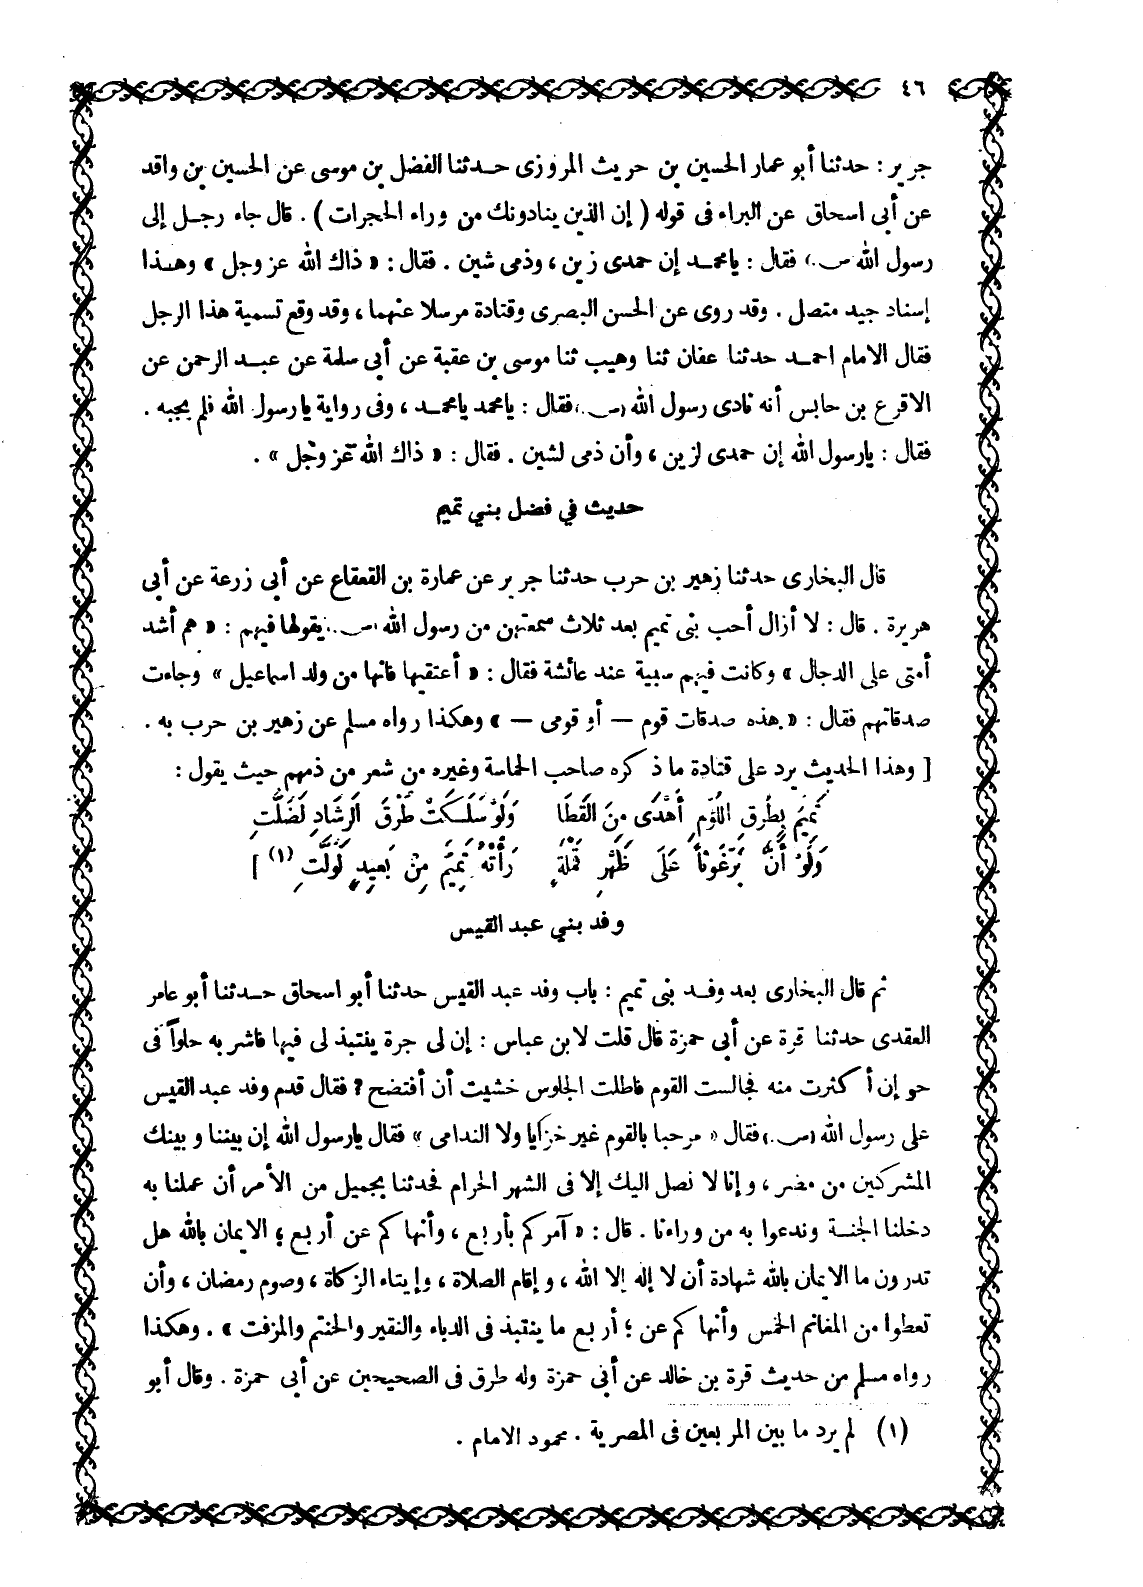 ٤٦
جرير : حدثنا أبو عمار الحسين بن حريث المروزى حـدثنا الفضل بن موسى عن الحسين بن واقد
عن أبى اسحاق عن البراء فى قوله ( إن الذين ينادونك من وراء الحجرات ) . قال جاء رجـل إلى
رسول الله (س.) فقال : يامحمـد إن حمدى زين ، وذمى شين . فقال : « ذاك الله عز وجل » وهـذا
إسناد جيد متصل . وقد روى عن الحسن البصرى وقتادة مرسلا عنهما ، وقد وقع تسمية هذا الرجل
فقال الامام احمـد حدثنا عفان ثنا وهيب ثنا موسى بن عقبة عن أبى سلمة عن عبـد الرحمن عن
الاقرع بن حابس أنه نادى رسول الله (س.) فقال : يامحمد يامحمـد ، وفى رواية يارسول الله فلم يجبه .
فقال : يارسول الله إن حمدى لزين ، وأن ذمى لشين . فقال : « ذاك الله عَز وجَل » .
حديث في فضل بني تميم
قال البخارى حدثنا زهير بن حرب حدثنا جرير عن عمارة بن القعقاع عن أبى زرعة عن أبى
هريرة . قال : لا أزال أحب بنى تميم بعد ثلاث سمعتهن من رسول الله (س.) يقولها فيهم : « هم أشد
أمتى على الدجال » وكانت فيهم سبية عند عائشة فقال : « أعتقيها فانها من ولد اسماعيل » وجاءت
صدقاتهم فقال : « هذه صدقات قوم — أو قومى — » وهكذا رواه مسلم عن زهير بن حرب به .
[ وهذا الحديث يرد على قتادة ما ذكره صاحب الحماسة وغيره من شعر من ذمهم حيث يقول :
تَمِيمٌ بِطُرقِ اللُؤمِ أَهْدَى مِنَ القَطَا وَلَوْ سَلَكَتْ طُرُقَ الرشَادِ لَضَلَّتِ
وَلَوْ أَنَّ بَرْغُوثاً عَلَى ظَهْرِ قَمْلَةٍ رَأَتْهُ تَمِيمٌ مِنْ بَعيدٍ لَولَّتِ (١) ]
وفد بني عبد القيس
ثم قال البخارى بعد وفـد بنى تميم : باب وفد عبد القيس حدثنا أبو اسحاق حـدثنا أبو عامر
العقدى حدثنا قرة عن أبى حمزة قال قلت لابن عباس : إن لى جرة ينتبذ لى فيها فاشربه حلواً فى
حو إن أكثرت منه فجالست القوم فاطلت الجلوس خشيت أن أفتضح ? فقال قدم وفد عبد القيس
على رسول الله (س.) فقال « مرحبا بالقوم غير خزايا ولا الندامى » فقال يارسول الله إن بيننا وبينك
المشركين من مضر ، وإنا لا نصل اليك إلا فى الشهر الحرام فحدثنا بجميل من الأمر أن عملنا به
دخلنا الجنـة وندعوا به من وراءنا . قال : « آمركم بأربع ، وأنهاكم عن أربع ؛ الايمان بالله هل
تدرون ما الايمان بالله شهادة أن لا إله إلا الله ، وإقام الصلاة ، وإيتاء الزكاة ، وصوم رمضان ، وأن
تعطوا من المغانم الخمس وأنهاكم عن ؛ أربع ما ينتبذ فى الدباء والنقير والحنتم والمزفت » . وهكذا
رواه مسلم من حديث قرة بن خالد عن أبى حمزة وله طرق فى الصحيحين عن أبى حمزة . وقال أبو
(١) لم يرد ما بين المربعين فى المصرية . محمود الامام .